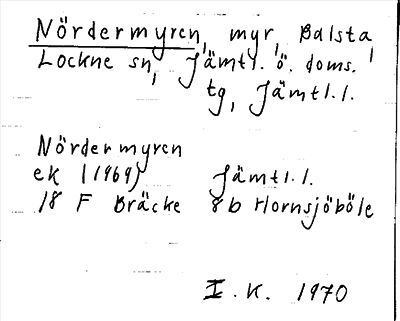 Nördermyren, myr, Balsta,
Lockne sn, Jämtl. ö. doms.
tg, Jämtl.l.
Nördermyren
ek (1969) Jämtl.l.
18 F Bräcke 8b Hornsjöböle
I.K. 1970